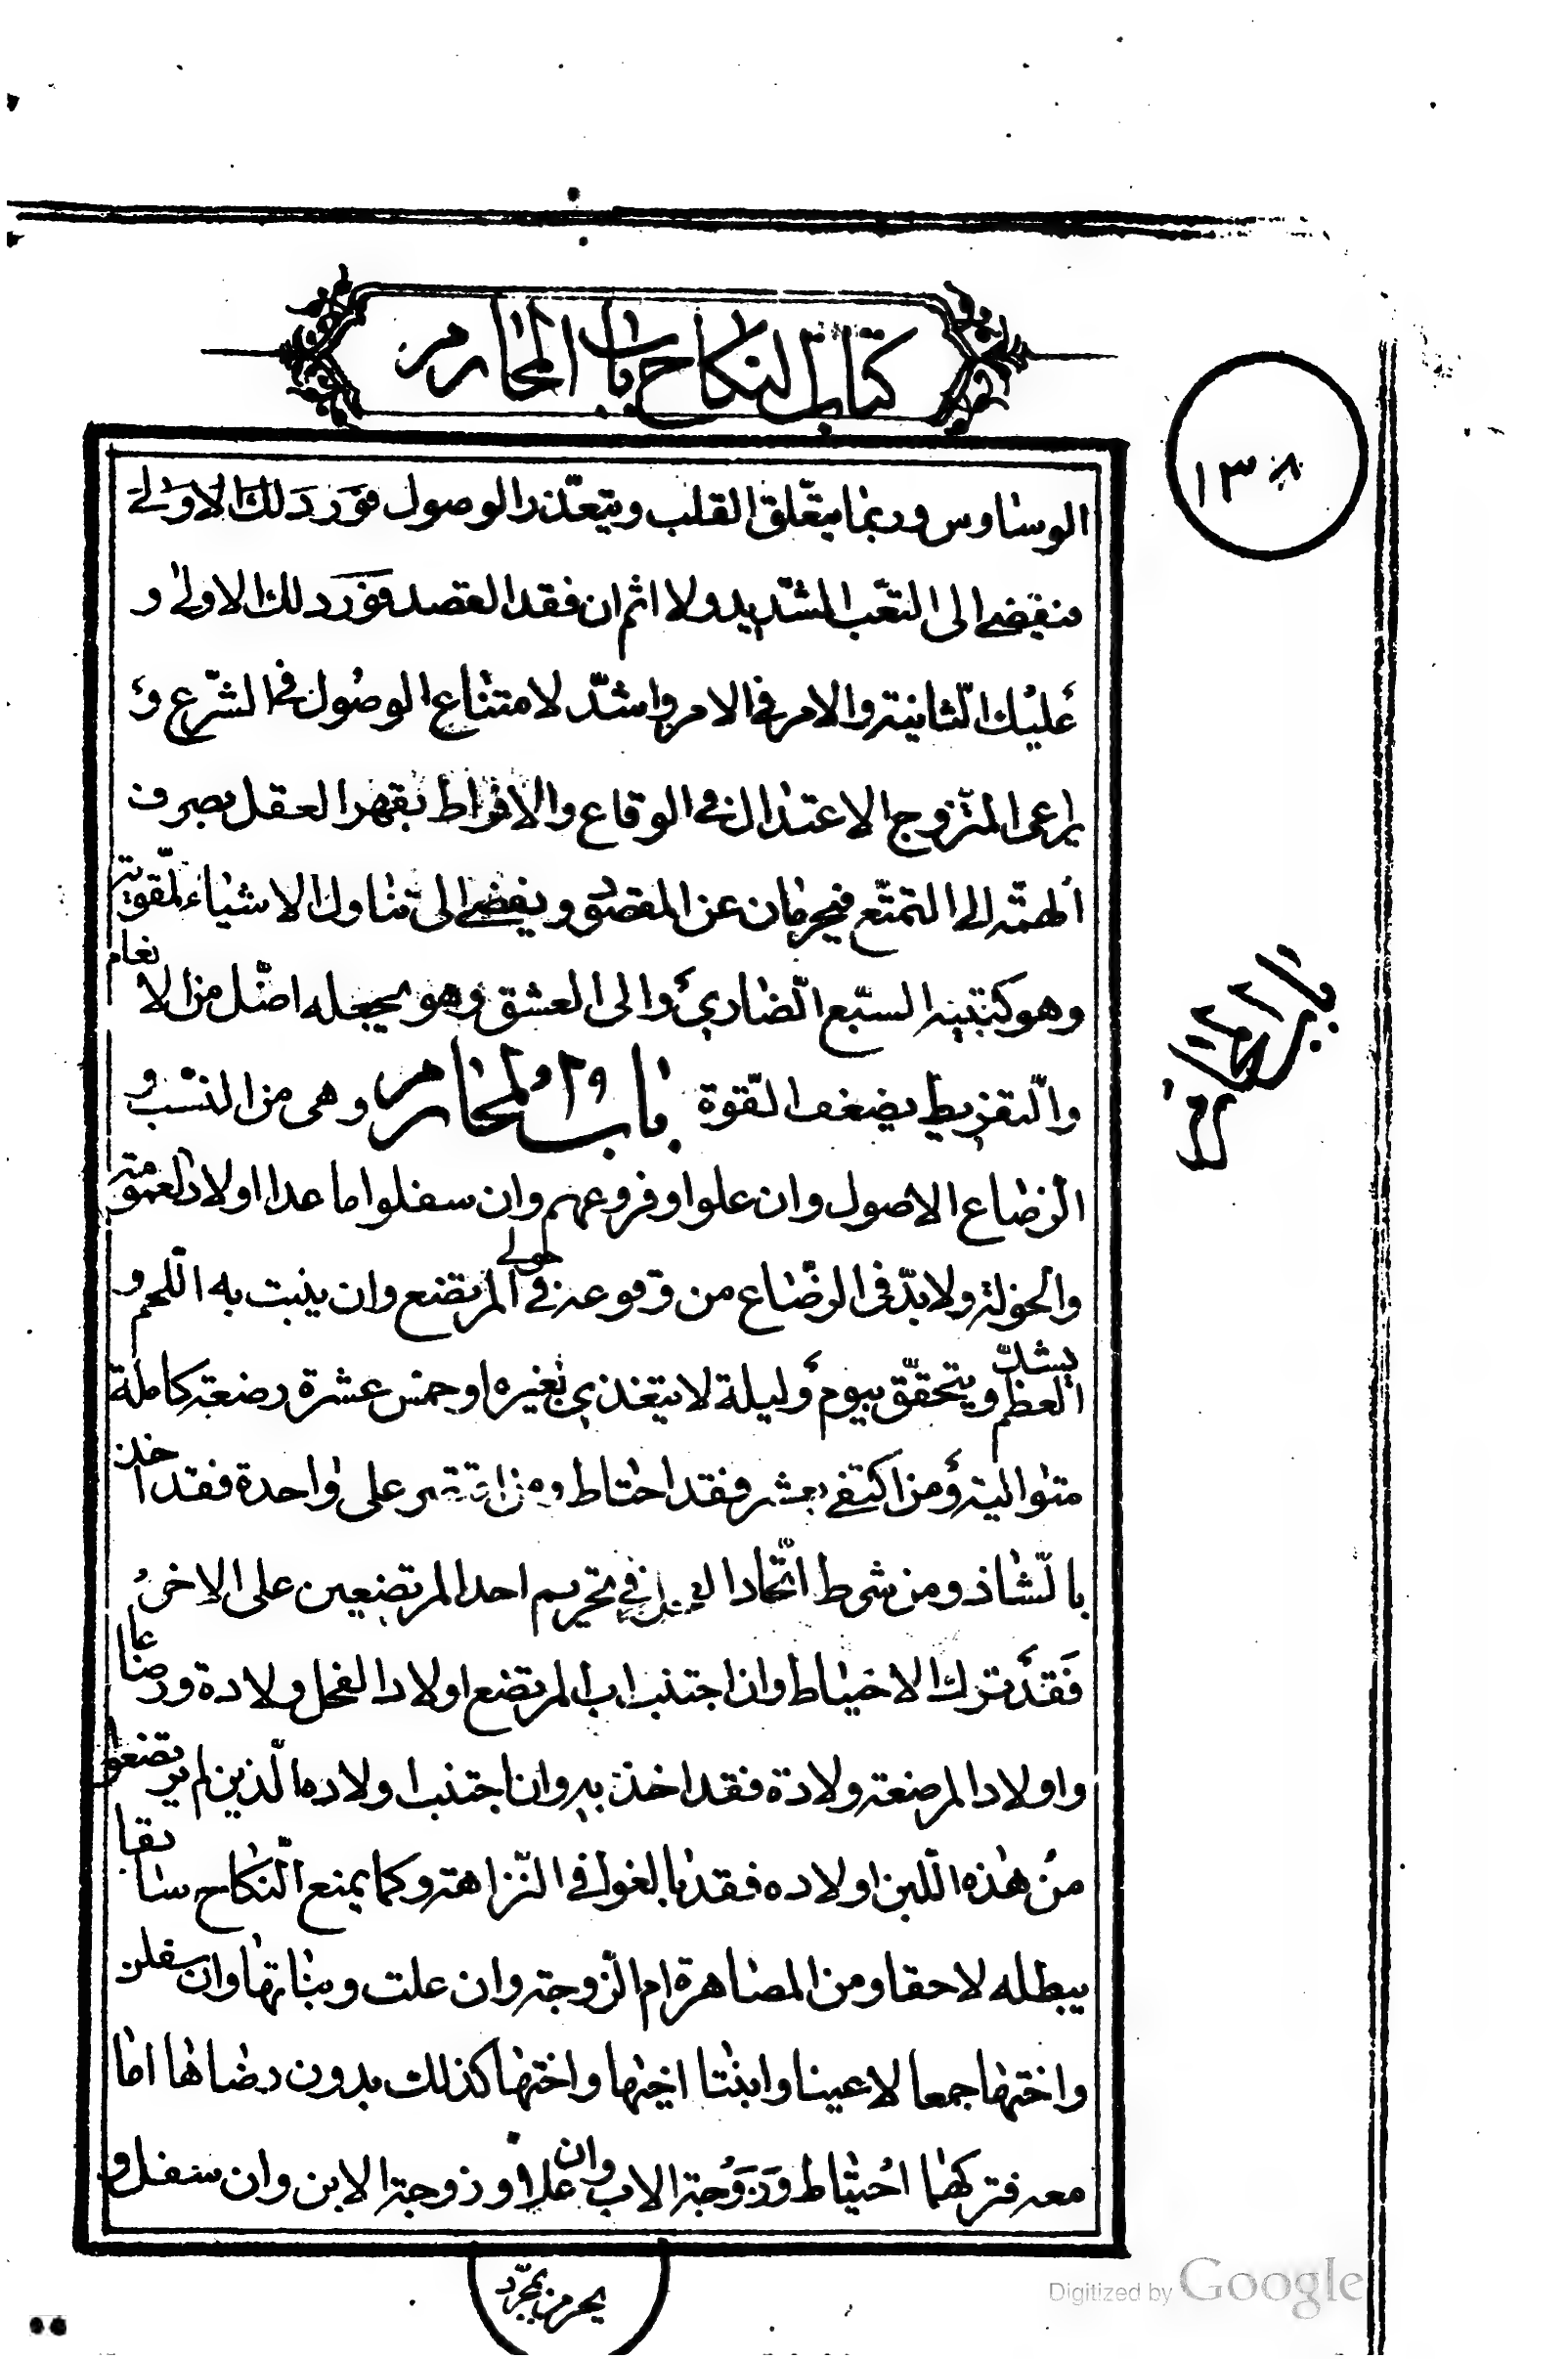 كتاب النكاح باب المحارم
١٣٨
الوساوس وربما يتعلق القلب ويتعذر الوصول فورد لك الاولى
منقضى الى التعب الشديد ولا اثم ان فقد القصد فورد لك الاولى و
عليك الثانية والامر فى الامرد اشد لامتناع الوصول فى الشرع و
يراعى المتزوج الاعتدال فى الوقاع والافراط يقهر العقل بصرف
الهمة الى التمتع فيحرمان عن المقصود ويفضى الى تناول الاشياء المقوية
وهو كتنبيه السبع الضارى والى العشق وهو يجعله اضل من الانعام
والتفريط يضعف القوة باب المحارم وهى من النسب و
الرضاع الاصول وان علوا وفروعهم وان سفلوا ما عدا اولاد العمومة
والخؤلة ولا بد فى الرضاع من وقوعه فى حولى المرتضع وان ينبت به اللحم و
يشد العظم ويتحقق بيوم وليلة لا يتغذى بغيره او خمس عشرة رضعة كاملة
متوالية ومن اكتفى بعشر فقد احتاط ومن اقتصر على واحدة فقد اخذ
بالشاذ ومن شرط اتحاد الفحل فى تحريم احد المرتضعين على الاخر
فقد ترك الاحتياط وان اجتنب اب المرتضع اولاد الفحل ولادة ورضاعا
واولاد المرضعة ولادة فقد اخذ به وان اجتنب اولاده الذين لم يرتضعوا
من هذه اللبن اولاده فقد بالغ فى النزاهة وكما يمنع النكاح سابقا
يبطله لاحقا ومن المصاهرة ام الزوجة وان علت وبناتها وان سفلن
واختها جمعا لا عينا وابنتا اخيها واختها كذلك بدون رضاها اما
معه فتركهما احتياط وزوجة الاب وان علا وزوجة الابن وان سفل و
يحرمن بمجرد
Digitized by Google